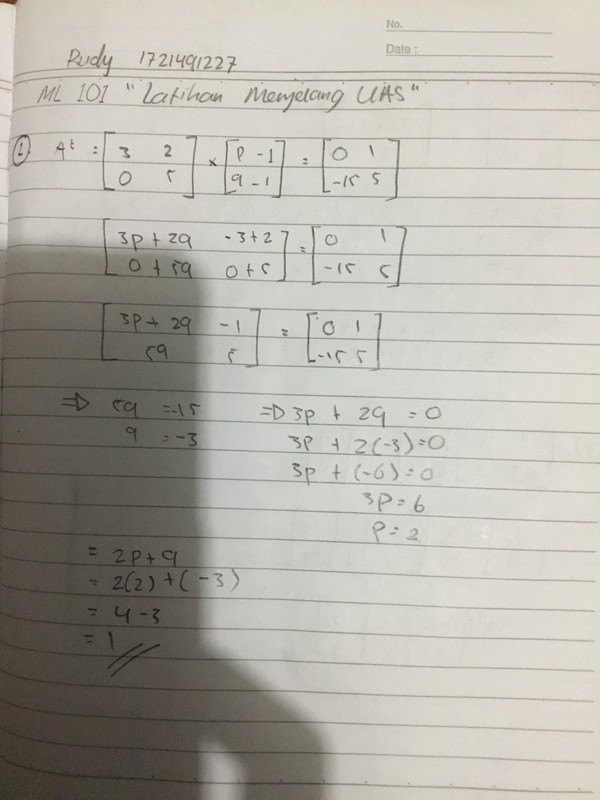 No.
Date :
Rudy 1721491227
ML 101 "Latihan Menjelang UAS"
① Aᵗ = [3 2] × [p -1] = [0 1]
[0 5] [q -1] [-15 5]
[3p + 2q -3+2] = [0 1]
[0 + 5q 0+5] [-15 5]
[3p + 2q -1] = [0 1]
[5q 5] [-15 5]
=> 5q = -15
q = -3
=> 3p + 2q = 0
3p + 2(-3) = 0
3p + (-6) = 0
3p = 6
p = 2
= 2p + q
= 2(2) + (-3)
= 4 - 3
= 1 //